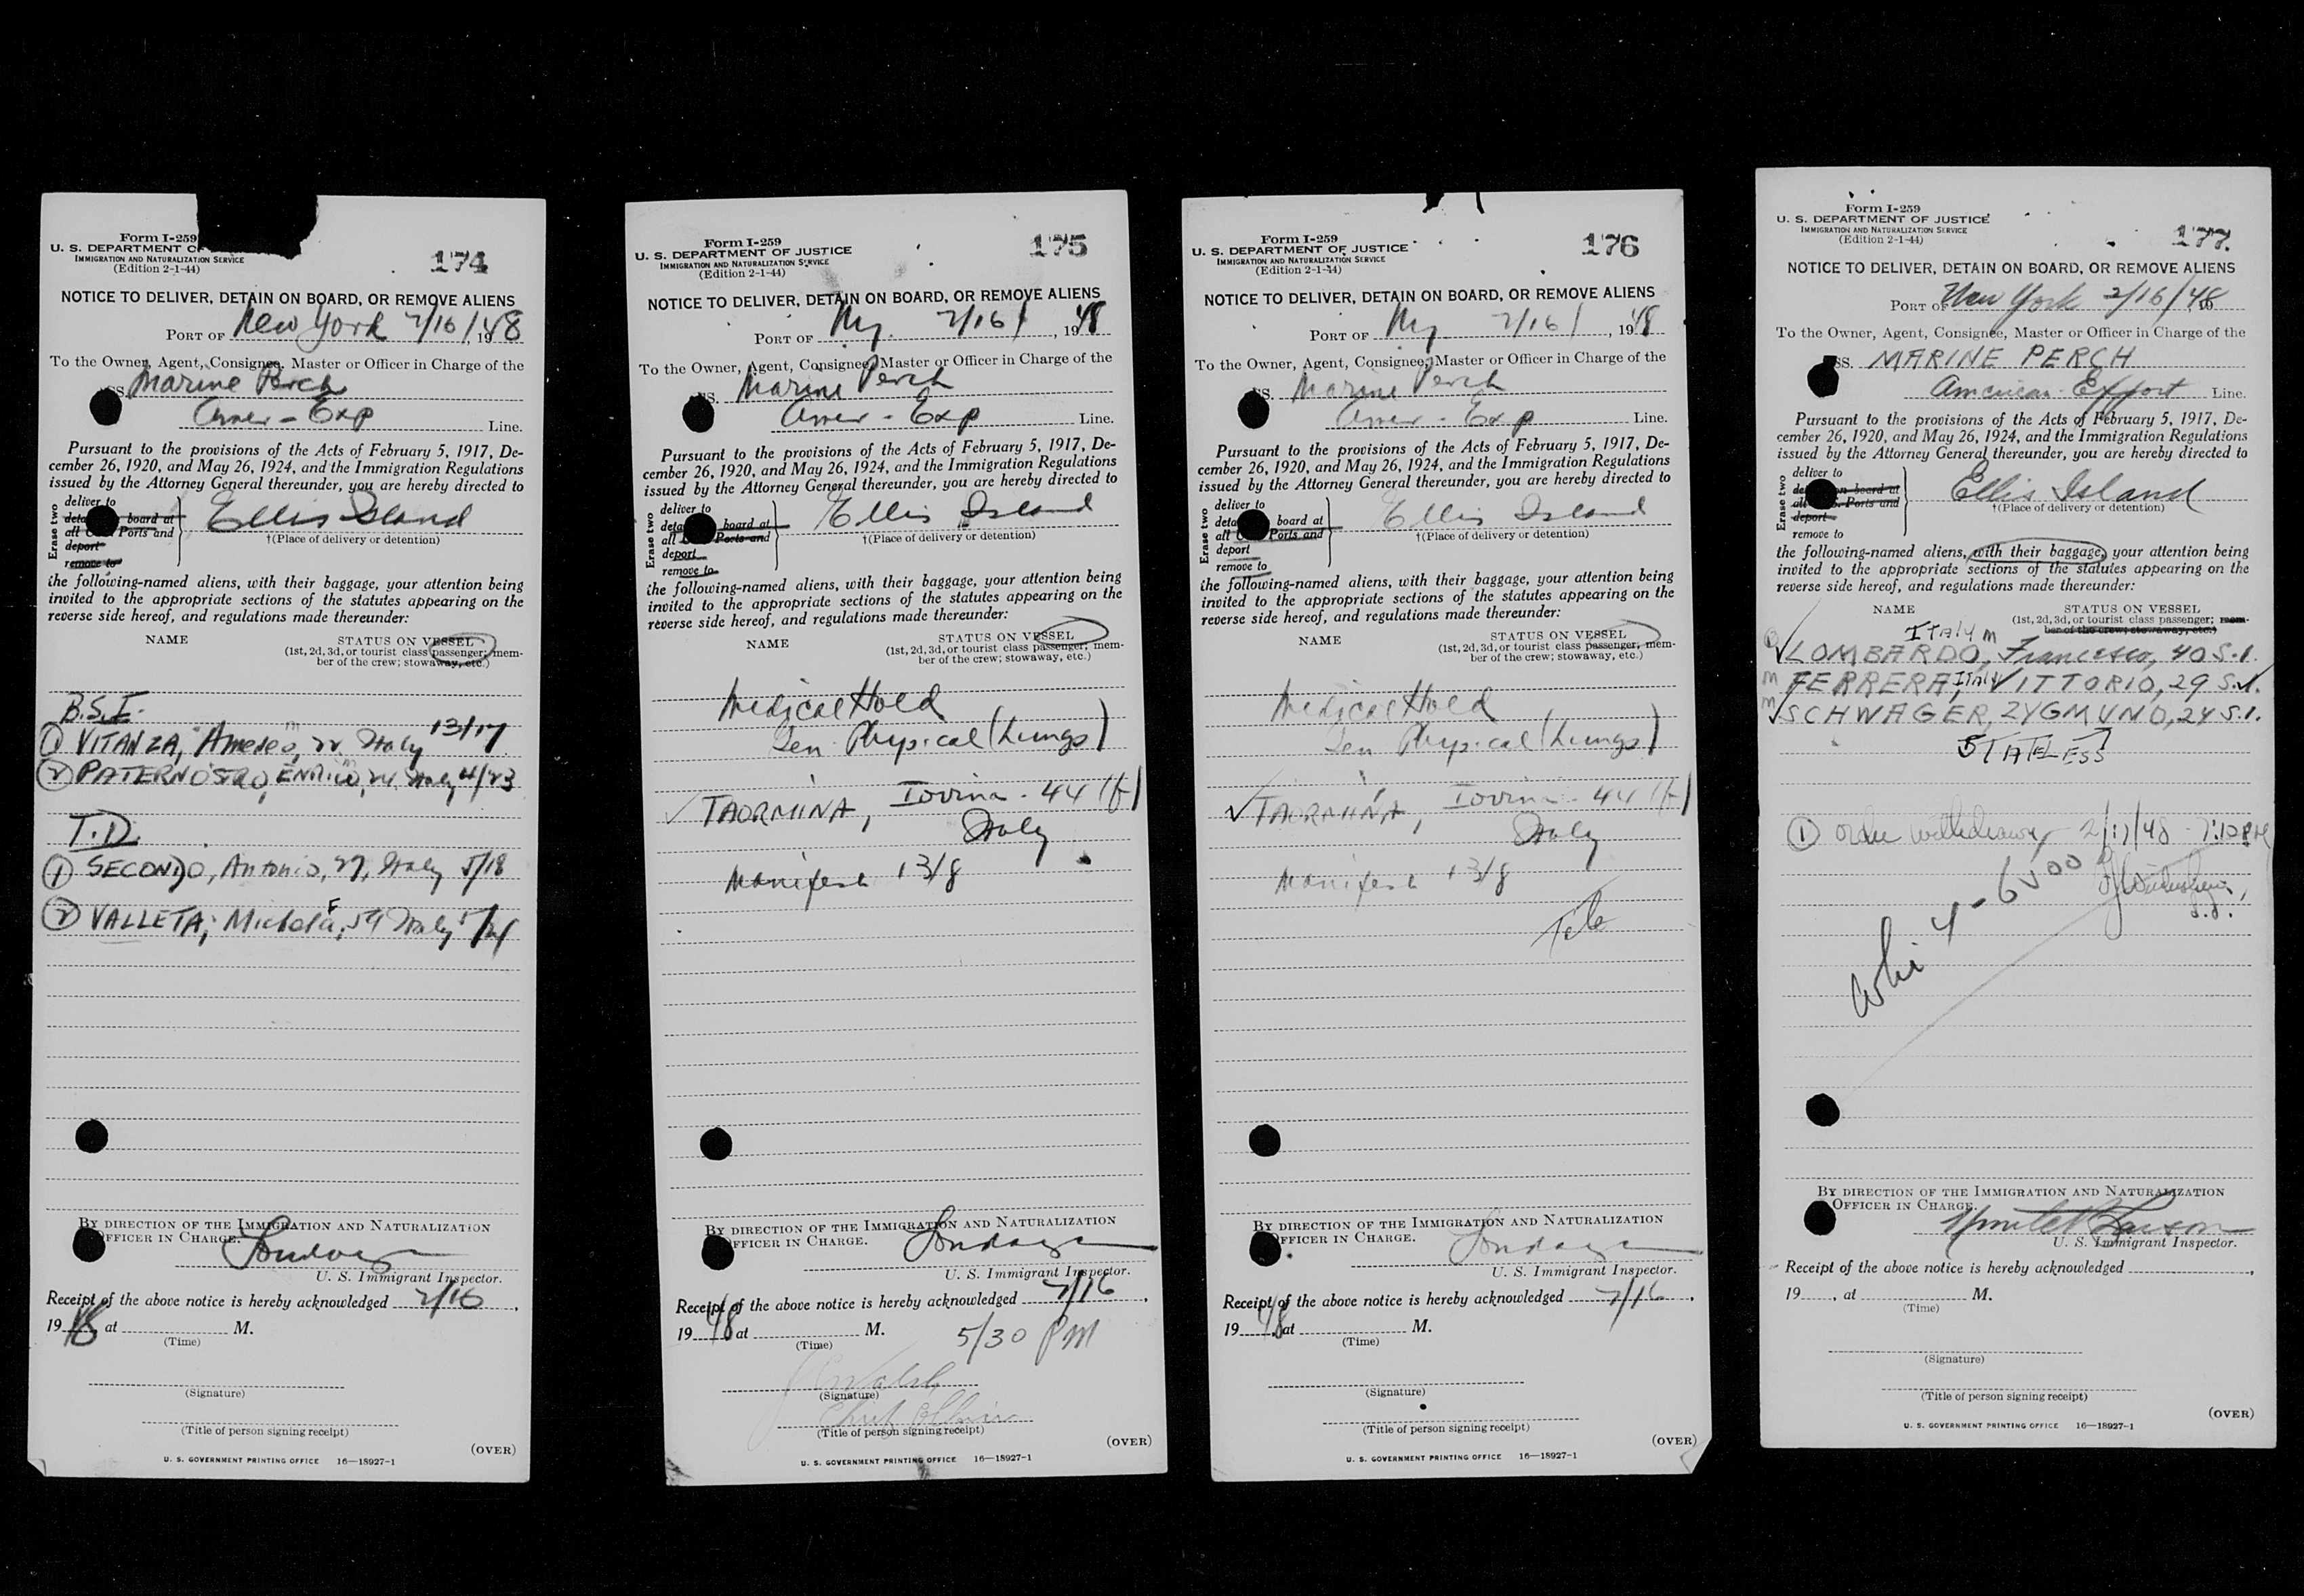 Form I-259
U. S. DEPARTMENT OF
IMMIGRATION AND NATURALIZATION SERVICE
(Edition 2-1-44)
174
NOTICE TO DELIVER, DETAIN ON BOARD, OR REMOVE ALIENS
PORT OF New York 2/16/1948
To the Owner, Agent, Consignee, Master or Officer in Charge of the
SS. Marine Perch
Amer - Exp Line.
Pursuant to the provisions of the Acts of February 5, 1917, De-
cember 26, 1920, and May 26, 1924, and the Immigration Regulations
issued by the Attorney General thereunder, you are hereby directed to
Erase two
deliver to
deta board at
all Ports and
deport
remove to
Ellis Island
†(Place of delivery or detention)
the following-named aliens, with their baggage, your attention being
invited to the appropriate sections of the statutes appearing on the
reverse side hereof, and regulations made thereunder:
NAME STATUS ON VESSEL
(1st, 2d, 3d, or tourist class passenger; mem-
ber of the crew; stowaway, etc.)
B.S.I.
① VITANZA, Amedeo, m 22 Italy 13/17
② PATERNOSTRO, ENRICO, m 24, Italy 4/23
T.D.
① SECONDO, Antonio, 27, Italy 5/18
② VALLETA, Michela, F 59 Italy 5/21
BY DIRECTION OF THE IMMIGRATION AND NATURALIZATION
OFFICER IN CHARGE.
U. S. Immigrant Inspector.
Receipt of the above notice is hereby acknowledged 2/16,
1948, at M.
(Time)
(Signature)
(Title of person signing receipt)
(OVER)
U. S. GOVERNMENT PRINTING OFFICE 16—18927-1
Form I-259
U. S. DEPARTMENT OF JUSTICE
IMMIGRATION AND NATURALIZATION SERVICE
(Edition 2-1-44)
175
NOTICE TO DELIVER, DETAIN ON BOARD, OR REMOVE ALIENS
PORT OF Ny. 2/16/, 1948
To the Owner, Agent, Consignee, Master or Officer in Charge of the
SS. Marine Perch
Amer - Exp Line.
Pursuant to the provisions of the Acts of February 5, 1917, De-
cember 26, 1920, and May 26, 1924, and the Immigration Regulations
issued by the Attorney General thereunder, you are hereby directed to
Erase two
deliver to
deta board at
all Ports and
deport
remove to
Ellis Island
†(Place of delivery or detention)
the following-named aliens, with their baggage, your attention being
invited to the appropriate sections of the statutes appearing on the
reverse side hereof, and regulations made thereunder:
NAME STATUS ON VESSEL
(1st, 2d, 3d, or tourist class passenger; mem-
ber of the crew; stowaway, etc.)
Medical Hold
Gen Physical (Lungs)
✓ TAORMINA, Iovina - 44 (f)
Italy
Manifest 13/8
BY DIRECTION OF THE IMMIGRATION AND NATURALIZATION
OFFICER IN CHARGE.
U. S. Immigrant Inspector.
Receipt of the above notice is hereby acknowledged 2/16,
1948 at M.
(Time)
5/30 PM
J Walsh
(Signature)
Chief Officer
(Title of person signing receipt)
(OVER)
U. S. GOVERNMENT PRINTING OFFICE 16—18927-1
Form I-259
U. S. DEPARTMENT OF JUSTICE
IMMIGRATION AND NATURALIZATION SERVICE
(Edition 2-1-44)
176
NOTICE TO DELIVER, DETAIN ON BOARD, OR REMOVE ALIENS
PORT OF Ny. 2/16/, 1948
To the Owner, Agent, Consignee, Master or Officer in Charge of the
SS. Marine Perch
Amer - Exp Line.
Pursuant to the provisions of the Acts of February 5, 1917, De-
cember 26, 1920, and May 26, 1924, and the Immigration Regulations
issued by the Attorney General thereunder, you are hereby directed to
Erase two
deliver to
deta board at
all Ports and
deport
remove to
Ellis Island
†(Place of delivery or detention)
the following-named aliens, with their baggage, your attention being
invited to the appropriate sections of the statutes appearing on the
reverse side hereof, and regulations made thereunder:
NAME STATUS ON VESSEL
(1st, 2d, 3d, or tourist class passenger; mem-
ber of the crew; stowaway, etc.)
Medical Hold
Gen Physical (Lungs)
✓ TAORMINA, Iovina - 44 (f)
Italy
Manifest 13/8
BY DIRECTION OF THE IMMIGRATION AND NATURALIZATION
OFFICER IN CHARGE.
U. S. Immigrant Inspector.
Receipt of the above notice is hereby acknowledged 2/16,
1948, at M.
(Time)
(Signature)
(Title of person signing receipt)
(OVER)
U. S. GOVERNMENT PRINTING OFFICE 16—18927-1
Form I-259
U. S. DEPARTMENT OF JUSTICE
IMMIGRATION AND NATURALIZATION SERVICE
(Edition 2-1-44)
177
NOTICE TO DELIVER, DETAIN ON BOARD, OR REMOVE ALIENS
PORT OF New York 2/16/48, 19
To the Owner, Agent, Consignee, Master or Officer in Charge of the
SS. MARINE PERCH
American Export Line.
Pursuant to the provisions of the Acts of February 5, 1917, De-
cember 26, 1920, and May 26, 1924, and the Immigration Regulations
issued by the Attorney General thereunder, you are hereby directed to
Erase two
deliver to
de n board at
all . Ports and
deport
remove to
Ellis Island
†(Place of delivery or detention)
the following-named aliens, with their baggage, your attention being
invited to the appropriate sections of the statutes appearing on the
reverse side hereof, and regulations made thereunder:
NAME STATUS ON VESSEL
(1st, 2d, 3d, or tourist class passenger; mem-
ber of the crew; stowaway, etc.)
ITALY m
① ✓ LOMBARDO, Francesco, 40 S.I.
m FERRERA, Italy VITTORIO, 29 S.I.
m ✓ SCHWAGER, ZYGMUND, 24 S.I.
STATELESS
① order withdrawn 2/17/48
Whi 4-6500
BY DIRECTION OF THE IMMIGRATION AND NATURALIZATION
OFFICER IN CHARGE.
U. S. Immigrant Inspector.
Receipt of the above notice is hereby acknowledged ,
19 , at M.
(Time)
(Signature)
(Title of person signing receipt)
(OVER)
U. S. GOVERNMENT PRINTING OFFICE 16—18927-1